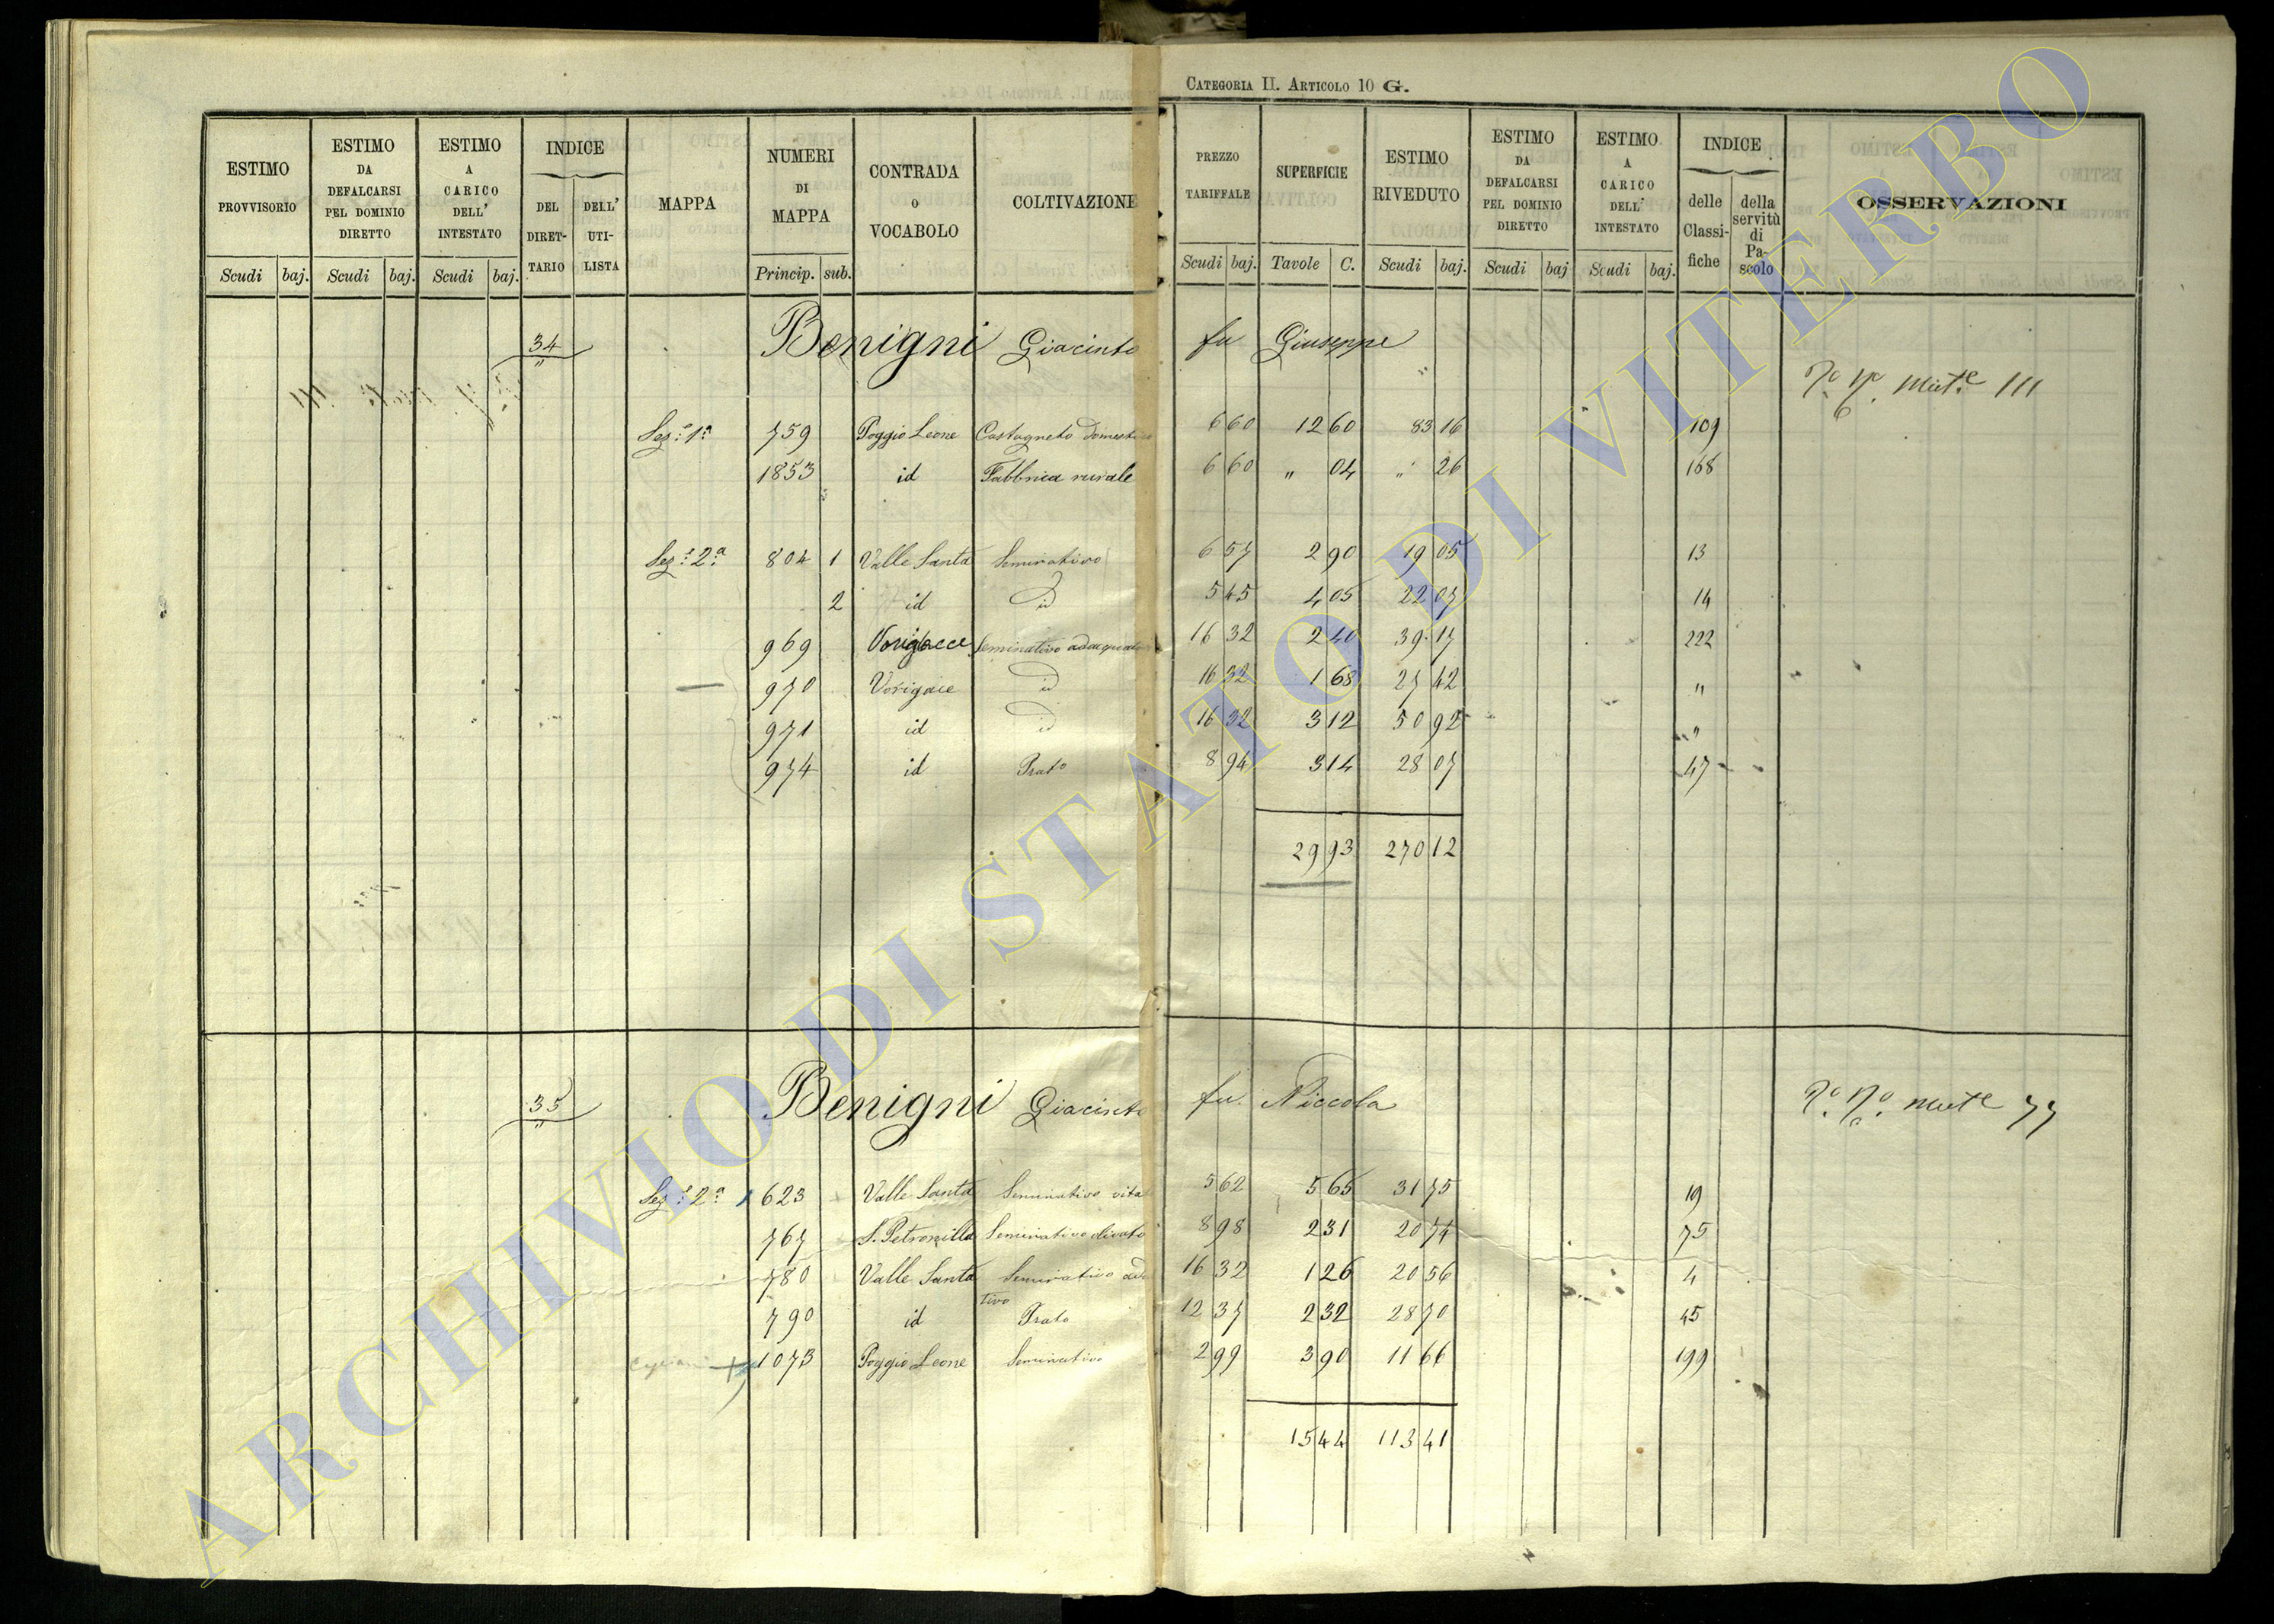 CATEGORIA II. ARTICOLO 10 G.
ESTIMO PROVVISORIO Scudi baj.
ESTIMO DA DEFALCARSI PEL DOMINIO DIRETTO Scudi baj.
ESTIMO A CARICO DELL' INTESTATO Scudi baj.
INDICE DEL DIRETTARIO DELL' UTILISTA
MAPPA
NUMERI DI MAPPA Princip. sub.
CONTRADA o VOCABOLO
COLTIVAZIONE
PREZZO TARIFFALE Scudi baj.
SUPERFICIE Tavole C.
ESTIMO RIVEDUTO Scudi baj.
ESTIMO DA DEFALCARSI PEL DOMINIO DIRETTO Scudi baj
ESTIMO A CARICO DELL' INTESTATO Scudi baj.
INDICE delle Classifiche della servitù di Pascolo
OSSERVAZIONI
34 Benigni Giacinto fu Giuseppe
111
Sez.e 1a 759 Poggio Leone Castagneto domestico 6 60 12 60 83 16 109
1853 id Fabbrica rurale 6 60 " 04 " 26 168
Sez.e 2a 804 1 Valle Santa Seminativo 6 57 2 90 19 05 13
2 id id 5 45 4 05 22 07 14
969 Vorigacce Seminativo adacquativo 16 32 2 40 39 17 222
970 Vorigaie id 16 32 1 68 27 42 "
971 id id 16 32 3 12 50 92 "
974 id Prato 8 94 3 14 28 07 47
29 93 270 12
35 Benigni Giacinto fu Niccola
77
Sez.e 2a 623 Valle Santa Seminativo vitato 5 62 5 65 31 75 19
767 S. Petronilla Seminativo olivato 8 98 2 31 20 74 75
780 Valle Santa Seminativo 16 32 1 26 20 56 4
tivo
790 id Prato 12 37 2 32 28 70 45
1073 Poggio Leone Seminativo 2 99 3 90 11 66 199
15 44 113 41
ARCHIVIO DI STATO DI VITERBO